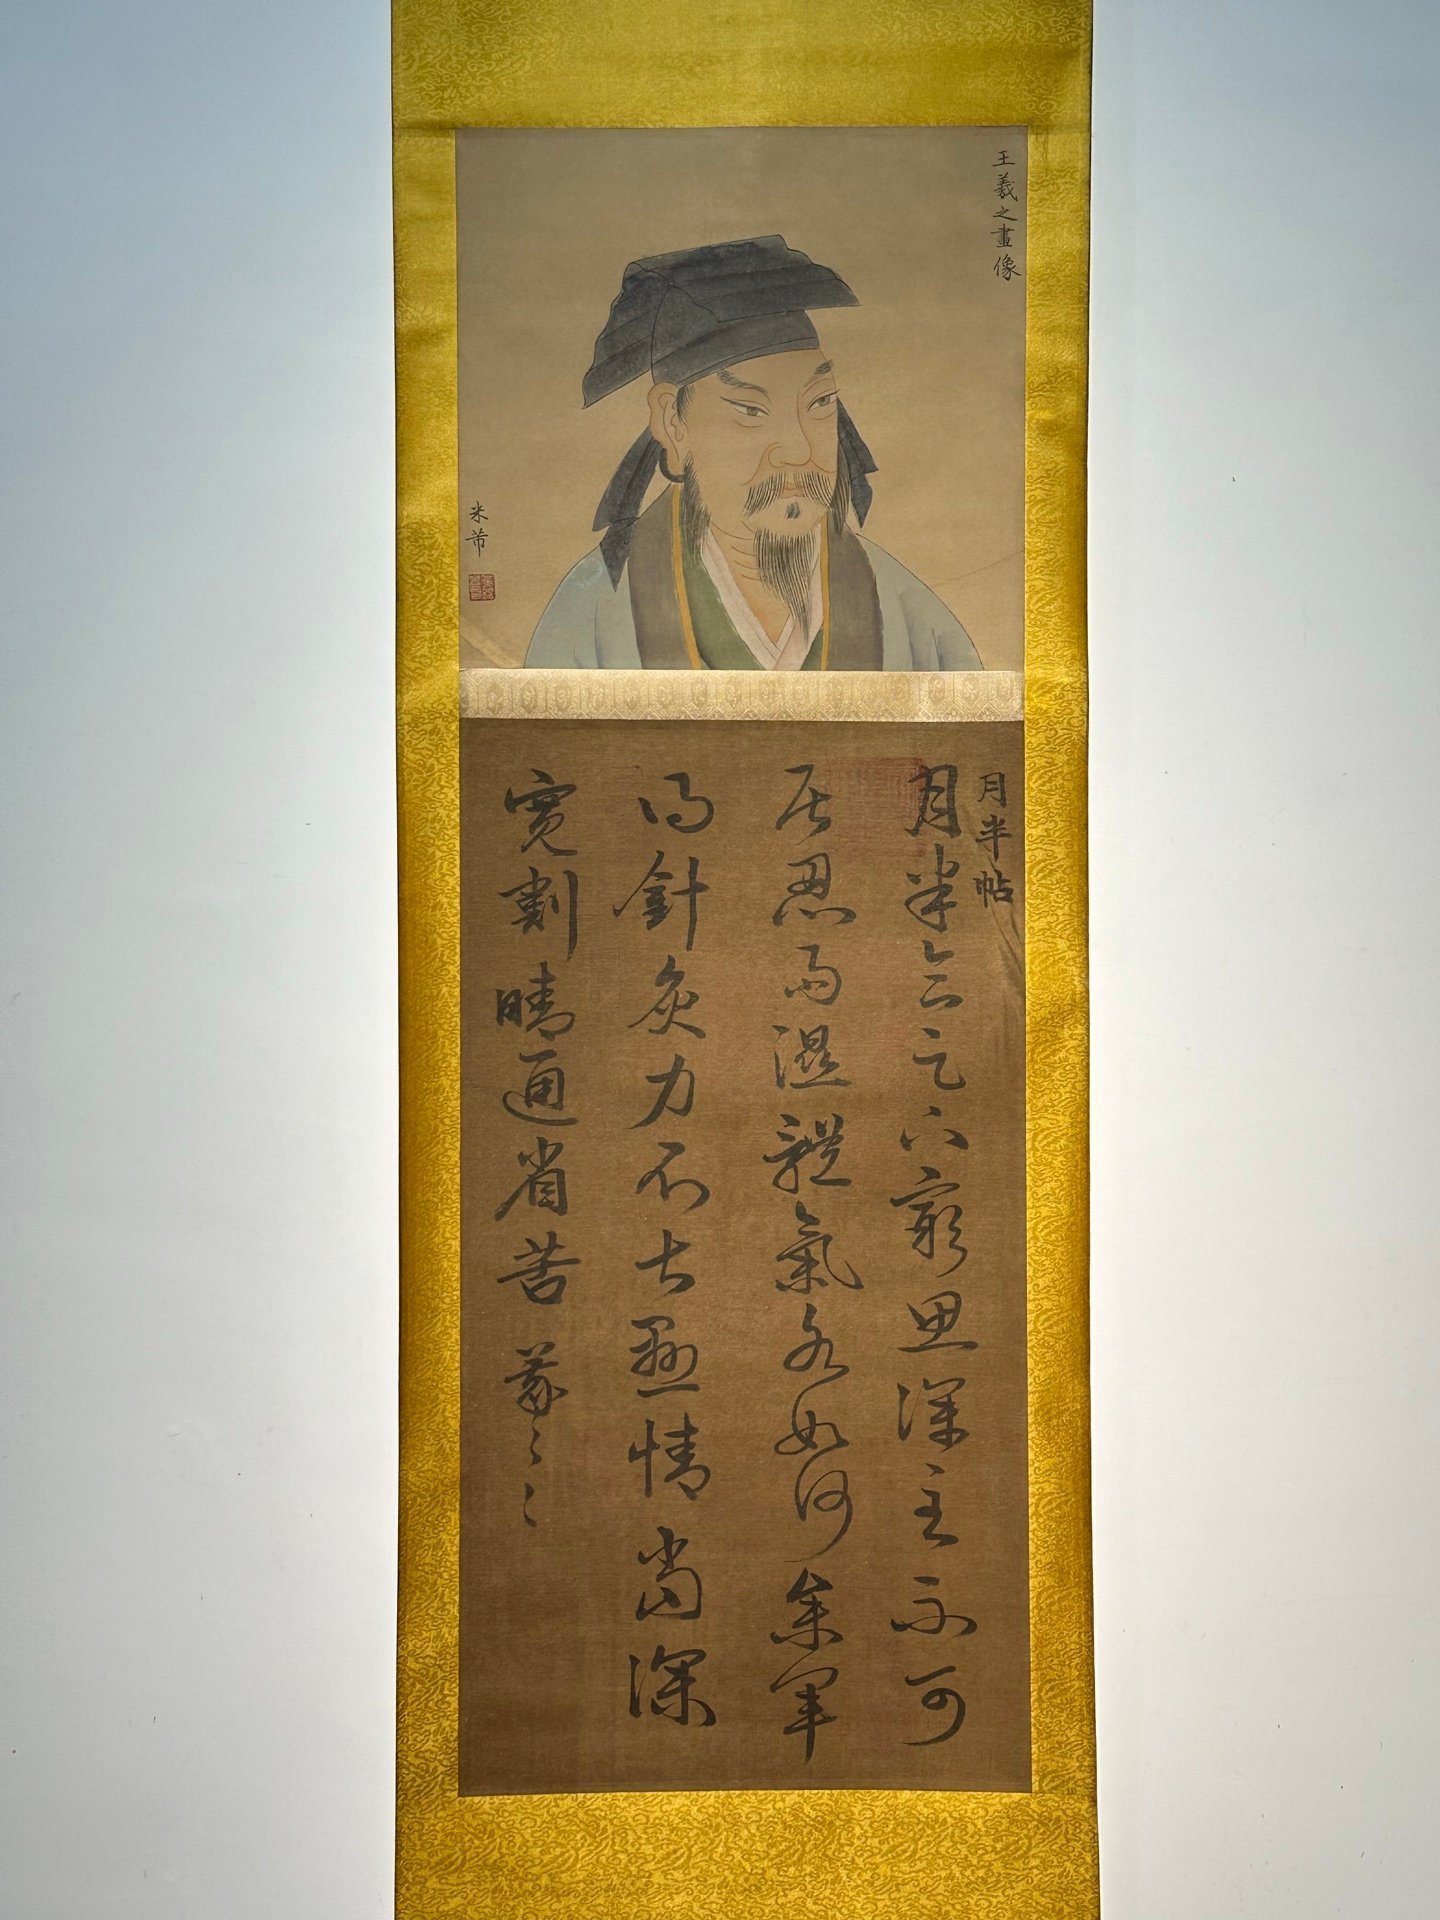 王羲之畫像
米芾
月半帖
月半念足下窮思深至不可
居忍雨濕體氣各如何參軍
得針灸力不甚懸情當深
寬割晴通省苦